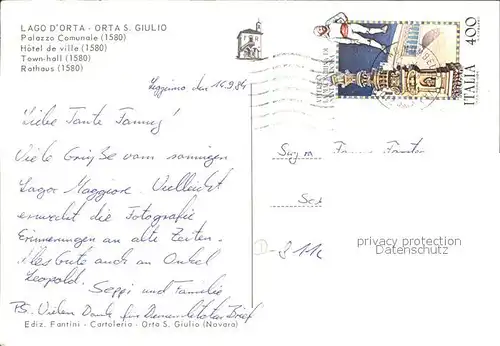 LAGO D'ORTA - ORTA S. GIULIO
Palazzo Comunale (1580)
Hôtel de ville (1580)
Town-hall (1580)
Rathaus (1580)
400
ITALIA
den 14.9.84
Liebe Tante Fanny!
Viele Grüße vom sonnigen
Lago Maggiore. Vielleicht
erweckt die Fotografie
Erinnerungen an alte Zeiten.
Alles Gute auch an Onkel
Leopold.
Seppi und Familie
PS. Vielen Dank für Deinen letzten Brief
Ediz. Fantini - Cartoleria - Orta S. Giulio (Novara)
privacy protection
Datenschutz